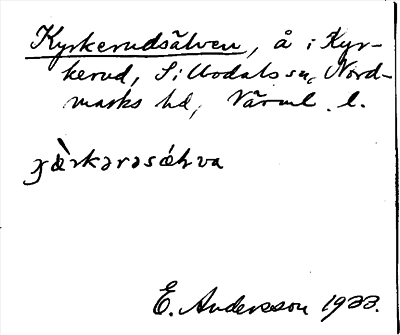 Kyrkerudsälven, å i Kyr-
kerud, Sillbodals sn, Nord-
marks hd, Värml. l.
ɟæ̀rkərəsǽɫva
E. Andersson 1933.